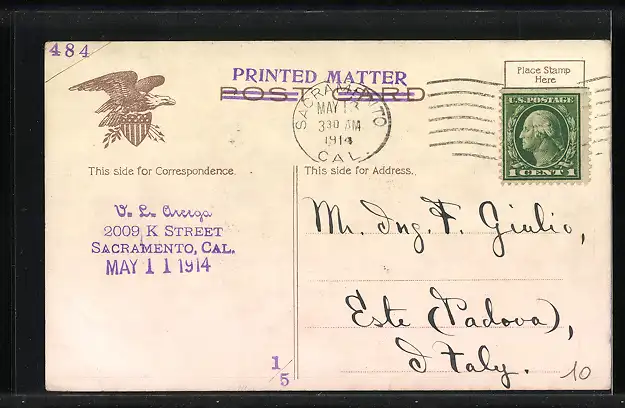 484
PRINTED MATTER
POST CARD
Place Stamp
Here
SACRAMENTO
MAY 13
330 AM
1914
CAL.
U.S. POSTAGE
1 CENT 1
This side for Correspondence.
This side for Address.
V. L.
2009 K STREET
SACRAMENTO, CAL.
MAY 11 1914
Mr. Ing. F. Giulio,
Este (Padova),
Italy.
1/5
10